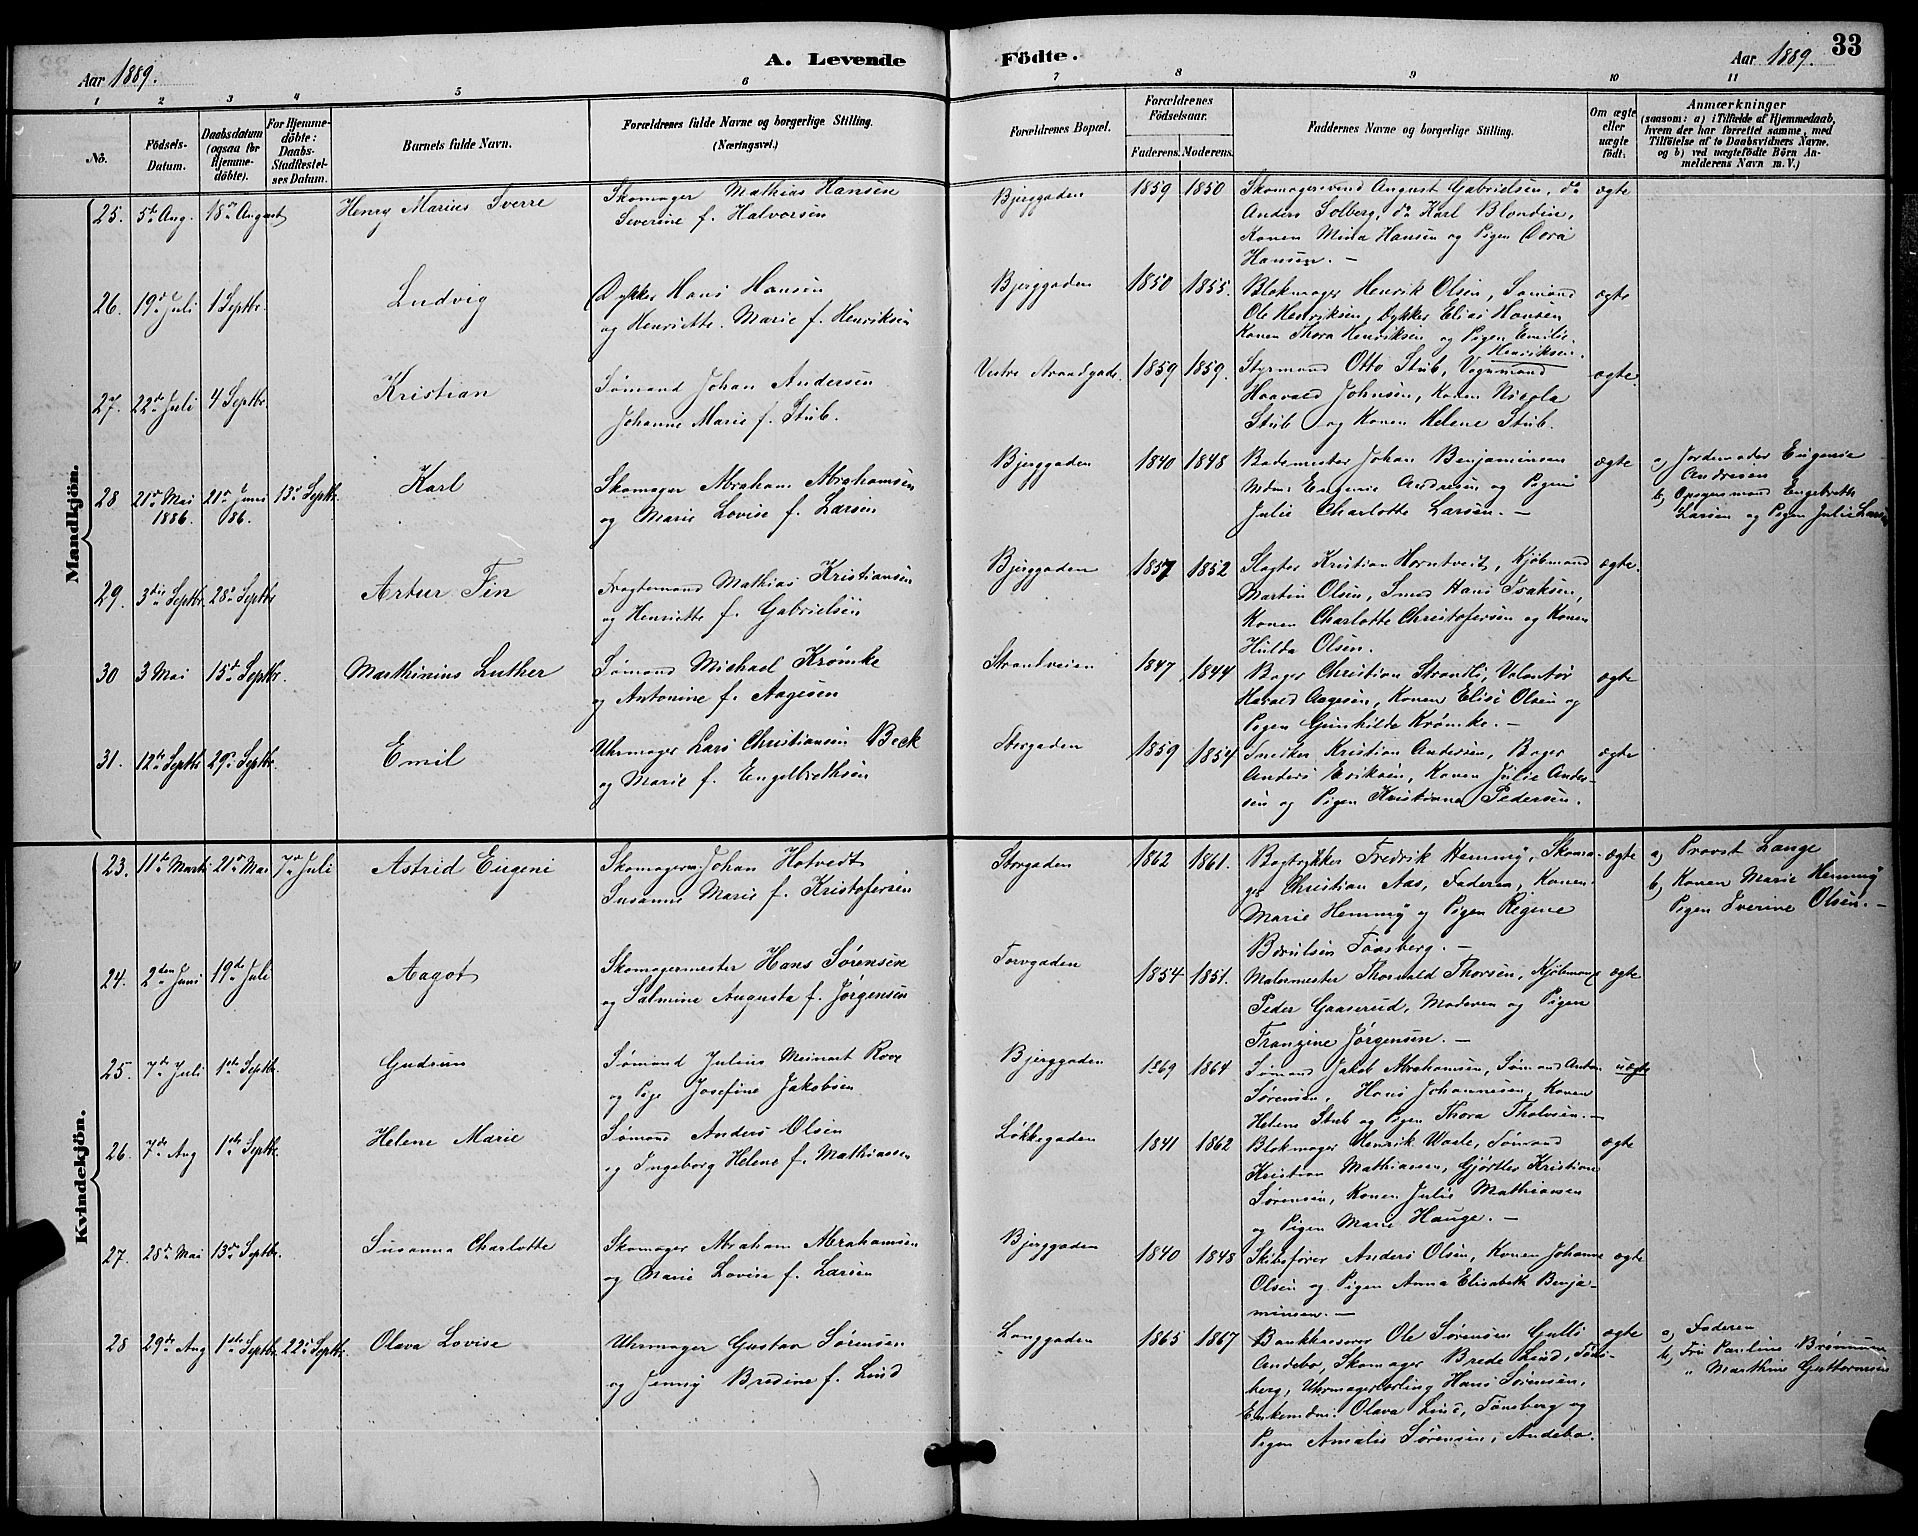 Aar 1889.
A. Levende
Födte.
Aar 1889.
33
1 2 3 4 5 6 7 8 9 10 11
No.
Födsels-
Datum.
Daabsdatum
(ogsaa for
Hjemme-
döbte).
For Hjemme-
döbte:
Daabs-
Stadfæstel-
ses Datum.
Barnets fulde Navn.
Forældrenes fulde Navne og borgerlige Stilling.
(Næringsvei.)
Forældrenes Bopæl.
Forældrenes
Födselsaar.
Faderens. Moderens.
Faddernes Navne og borgerlige Stilling.
Om ægte
eller
uægte
födt:
Anmærkninger
(saasom: a) i Tilfælde af Hjemmedaab,
hvem der har forrettet samme, med
Tilföielse af to Daabsvidners Navne.
og b) ved uægtefödte Börn An-
melderens Navn m. V.)
Mandkjön.
25. 5te Aug. 18de August Henry Marius Sverre
Skomager Mathias Hansen
Severine f. Halvorsen
Bjerggaden 1859 1850
Skomagersvend August Gabrielsen, do
Anders Solberg, do Karl Blondin,
Konen Mina Hansen og Pigen Dora
Hansen. —
ægte
26. 19de Juli 1 Septbr. Ludvig
Dykker Hans Hansen
og Henriette Marie f. Henriksen
Bjerggaden 1850 1855.
Blokmager Henrik Olsen, Sømand
Ole Henriksen, Dykker Elias Hansen
Konen Thora Henriksen og Pigen Emilie
Henriksen.
ægte
27. 22de Juli 4 Septbr. Kristian
Sømand Johan Andersen
Johanne Marie f. Stub.
Vestre Strandgade. 1859 1859.
Styrmand Otto Stub, Vognmand
Haavald Johnsen, Konen Nicola
Stub og Konen Helene Stub.
ægte.
28 21de Mai 1886. 21de Juni 86. 13de Septbr. Karl
Skomager Abraham Abrahamsen
og Marie Lovise f. Larsen
Bjerggaden 1840 1848
Bademester Johan Benjaminsen
Mdme Eugenie Andresen og Pigen
Julie Charlotte Larsen. —
ægte
a) Jordemoder Eugenie
Andresen
b) Opsynsmand Engebreth
Larsen og Pigen Julie Larsen
29. 3die Septbr. 28de Septbr Artur Fin
Fragtemand Mathias Kristiansen
og Henriette f. Gabrielsen
Bjerggaden 1857 1852
Slagter Kristian Horntvedt, Kjøbmand
Martin Olsen, Smed Hans Isaksen,
Konen Charlotte Christofersen og Konen
Hulda Olsen.
ægte.
30 3 Mai 15de Septbr. Marthinius Luther
Sømand Michael Krømke
og Antonine f. Aagesen
Strandveien 1847 1844
Bager Christian Strandli, Volontør
Harald Aagesen, Konen Elise Olsen og
Pigen Gunhilda Krømke. —
ægte
31. 12te Septbr 29de Septbr. Emil
Uhrmager Lars Christiansen Beck
og Marie f. Engelbrethsen
Storgaden 1859 1854
Snedker Kristian Andersen, Bager
Anders Eriksen, Konen Julie Ander-
sen og Pigen Kristiane Pedersen.
ægte
Kvindekjön.
23. 11te Marts 21de Mai 7de Juli Astrid Eugeni
Skomagerm Johan Hotvedt
Susanne Marie f. Kristofersen
Storgaden 1862 1861.
Bogtrykker Fredrik Hemmig, Skoma-
ger Christian Aas, Faderen, Konen
Marie Hemmig og Pigen Regine
Børulsen Tønsberg. —
ægte
a) Provst Lange
b) Konen Marie Hemmig
Pigen Sverine Olsen. —
24. 2den Juni 19de Juli Aagot
Skomagermester Hans Sørensen
og Salmine Augusta f. Jørgensen
Torvgaden 1854 1851.
Malermester Thorvald Thorsen, Kjøbmand
Peder Gaaserud, Moderen og Pigen
Franzine Jørgensen. —
ægte
25. 7de Juli 1ste Septbr. Gudrun
Sømand Julius Meinart Rove
og Pige Josefine Jakobsen
Bjerggaden 1869 1864
Sømand Jakob Abrahamsen, Sømand Anton
Sørensen, Hans Johannesen, Konen
Helene Stub og Pigen Thora Tholvsen. —
uægte
26. 7de Aug 1ste Septbr. Helene Marie
Sømand Anders Olsen
og Ingeborg Helene f. Mathiassen
Løkkegaden 1841 1862
Blokmager Henrik Waale, Sømand
Kristian Mathiasen, Gjørtler Kristian
Sørensen, Konen Julie Mathiasen
og Pigen Marie Hauge. —
ægte
27. 28de Mai 13de Septbr. Susanna Charlotte
Skomager Abraham Abrahamsen
og Marie Lovise f. Larsen
Bjerggaden 1840 1848
Skibsfører Anders Olsen, Konen Johanne
Olsen og Pigen Anna Elisabeth Benja-
minsen. —
ægte
28 29de Aug 1ste Septbr. 22de Septbr. Olava Lovise
Uhrmager Gustav Sørensen
og Jenny Bredine f. Lind
Langgaden 1865 1867
Bankkasserer Ole Sørensen Gulli
Andebo, Skomager Brede Lind, Tøns-
berg, Uhrmagerlærling Hans Sørensen,
Enkemdm. Olava Lind, Tønsberg og
Pigen Amalie Sørensen, Andebo.
ægte
a) Faderen
b) Fru Pauline Brønnum
" Marthine Guttormsen